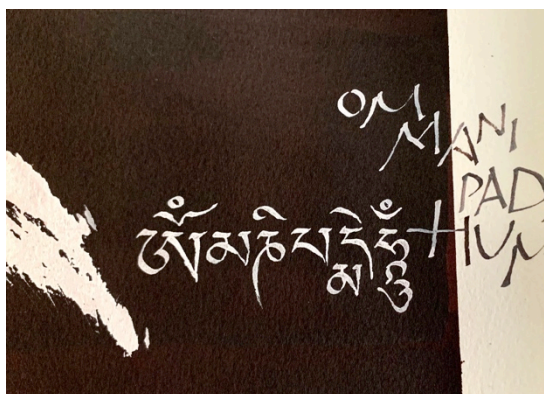 OM
MANI
PAD
HUM
ཨོཾམཎིཔདྨེཧཱུྃ